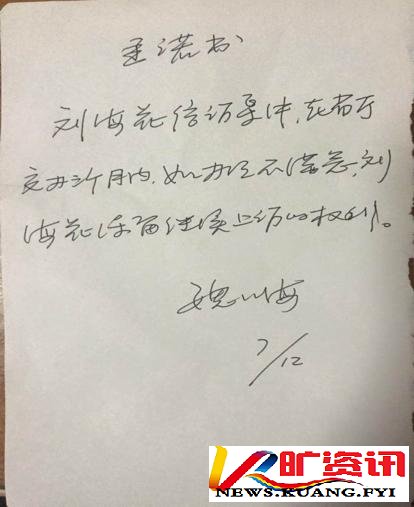 承诺书
刘海花信访案件,在省厅
交办三个月内,如办法不满意,刘
海花保留继续上访的权利。
7/12
旷资讯
NEWS.KUANG.FYI